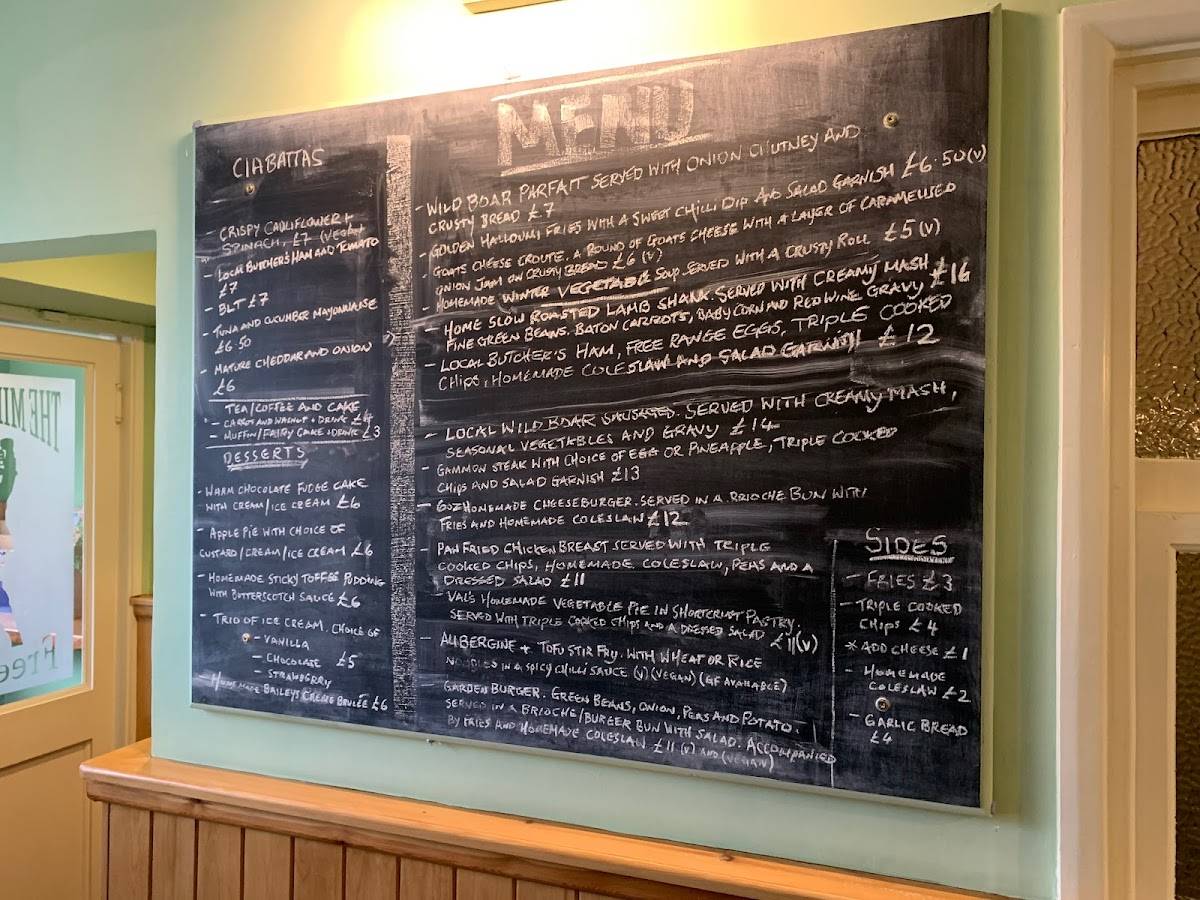 MENU
CIABATTAS
- CRISPY CAULIFLOWER +
SPINACH, £7 (VEGAN)
- LOCAL BUTCHER'S HAM AND TOMATO
£7
- BLT £7
- TUNA AND CUCUMBER MAYONNAISE
£6.50
- MATURE CHEDDAR AND ONION
£6
TEA/COFFEE AND CAKE
- CARROT AND WALNUT + DRINK £4
- MUFFIN/FAIRY CAKE + DRINK £3
DESSERTS
- WARM CHOCOLATE FUDGE CAKE
WITH CREAM/ICE CREAM £6
- APPLE PIE WITH CHOICE OF
CUSTARD/CREAM/ICE CREAM £6
- HOMEMADE STICKY TOFFEE PUDDING
WITH BUTTERSCOTCH SAUCE £6
- TRIO OF ICE CREAM. CHOICE OF
- VANILLA
- CHOCOLATE £5
- STRAWBERRY
- HOMEMADE BAILEYS CREME BRULEE £6
- WILD BOAR PARFAIT SERVED WITH ONION CHUTNEY AND
CRUSTY BREAD £7
- GOLDEN HALLOUMI FRIES WITH A SWEET CHILLI DIP AND SALAD GARNISH £6.50 (V)
- GOATS CHEESE CROUTE. A ROUND OF GOATS CHEESE WITH A LAYER OF CARAMELISED
ONION JAM ON CRUSTY BREAD £6 (V)
- HOMEMADE WINTER VEGETABLE SOUP. SERVED WITH A CRUSTY ROLL £5 (V)
- HOME SLOW ROASTED LAMB SHANK. SERVED WITH CREAMY MASH
FINE GREEN BEANS. BATON CARROTS, BABY CORN AND RED WINE GRAVY £16
- LOCAL BUTCHER'S HAM, FREE RANGE EGGS, TRIPLE COOKED
CHIPS, HOMEMADE COLESLAW AND SALAD GARNISH £12
- LOCAL WILD BOAR SAUSAGES. SERVED WITH CREAMY MASH,
SEASONAL VEGETABLES AND GRAVY £14
- GAMMON STEAK WITH CHOICE OF EGG OR PINEAPPLE, TRIPLE COOKED
CHIPS AND SALAD GARNISH £13
- 6OZ HOMEMADE CHEESEBURGER. SERVED IN A BRIOCHE BUN WITH
FRIES AND HOMEMADE COLESLAW £12
- PAN FRIED CHICKEN BREAST SERVED WITH TRIPLE
COOKED CHIPS, HOMEMADE COLESLAW, PEAS AND A
DRESSED SALAD £11
- VAL'S HOMEMADE VEGETABLE PIE IN SHORTCRUST PASTRY.
SERVED WITH TRIPLE COOKED CHIPS AND A DRESSED SALAD £11(V)
- AUBERGINE + TOFU STIR FRY. WITH WHEAT OR RICE
NOODLES IN A SPICY CHILLI SAUCE (V) (VEGAN) (GF AVAILABLE)
- GARDEN BURGER. GREEN BEANS, ONION, PEAS AND POTATO.
SERVED IN A BRIOCHE/BURGER BUN WITH SALAD. ACCOMPANIED
BY FRIES AND HOMEMADE COLESLAW £11 (V) AND (VEGAN)
SIDES
- FRIES £3
- TRIPLE COOKED
CHIPS £4
* ADD CHEESE £1
- HOMEMADE
COLESLAW £2
- GARLIC BREAD
£4
THE MI
Free